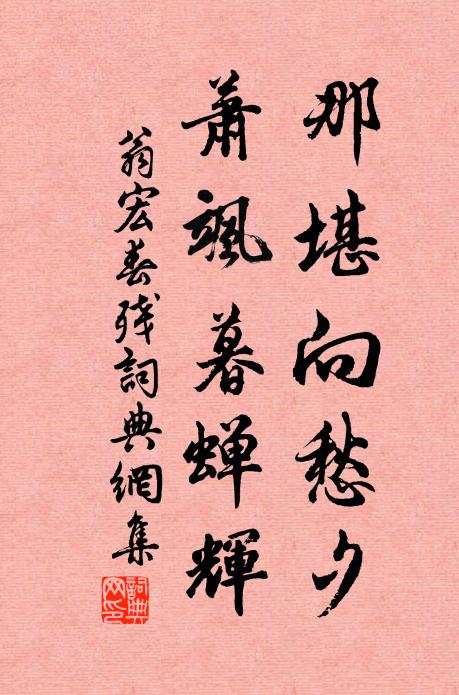 那堪向愁夕
蕭颯暮蟬輝
翁宏春殘詞典網集
詞典網印